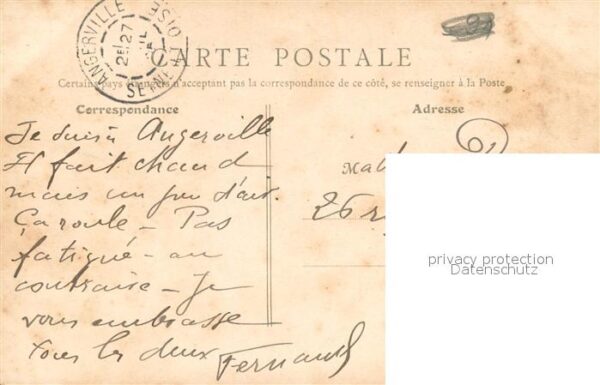 ANGERVILLE
SEINE-ET-OISE
2E
27
CARTE POSTALE
Certains pays étrangers n'acceptant pas la correspondance de ce côté, se renseigner à la Poste
Correspondance
Adresse
Je suis à Angerville
Il fait chaud
mais un peu d'air.
Ça roule - Pas
fatigué - au
contraire - Je
vous embrasse
tous les deux
Fernand
M
26 r
privacy protection
Datenschutz